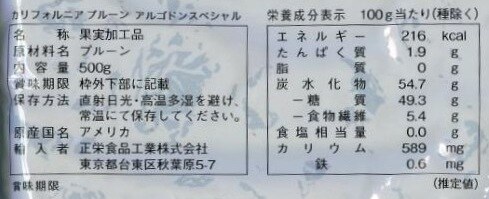 カリフォルニアプルーン アルゴドンスペシャル
名称 果実加工品
原材料名 プルーン
内容量 500g
賞味期限 枠外下部に記載
保存方法 直射日光・高温多湿を避け、
常温にて保存してください。
原産国名 アメリカ
輸入者 正栄食品工業株式会社
東京都台東区秋葉原5-7
賞味期限
栄養成分表示 100g当たり(種除く)
エネルギー 216 kcal
たんぱく質 1.9 g
脂質 0 g
炭水化物 54.7 g
－糖質 49.3 g
－食物繊維 5.4 g
食塩相当量 0.0 g
カリウム 589 mg
鉄 0.6 mg
(推定値)